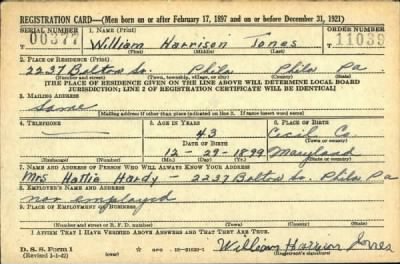 REGISTRATION CARD—(Men born on or after February 17, 1897 and on or before December 31, 1921)
SERIAL NUMBER 1. NAME (Print) ORDER NUMBER
U 00377 William Harrison Jones 11039
(First) (Middle) (Last)
2. PLACE OF RESIDENCE (Print)
2237 Bolton St. Phila Phila Pa.
(Number and street) (Town, township, village, or city) (County) (State)
[THE PLACE OF RESIDENCE GIVEN ON THE LINE ABOVE WILL DETERMINE LOCAL BOARD
JURISDICTION; LINE 2 OF REGISTRATION CERTIFICATE WILL BE IDENTICAL]
3. MAILING ADDRESS
Same
[Mailing address if other than place indicated on line 2. If same insert word same]
4. TELEPHONE 5. AGE IN YEARS 6. PLACE OF BIRTH
43 Cecil Co.
DATE OF BIRTH (Town or county)
12 - 29 - 1899 Maryland
(Exchange) (Number) (Mo.) (Day) (Yr.) (State or country)
7. NAME AND ADDRESS OF PERSON WHO WILL ALWAYS KNOW YOUR ADDRESS
Mrs Hattie Hardy - 2237 Bolton St. Phila Pa
8. EMPLOYER'S NAME AND ADDRESS
not employed
9. PLACE OF EMPLOYMENT OR BUSINESS
(Number and street or R. F. D. number) (Town) (County) (State)
I AFFIRM THAT I HAVE VERIFIED ABOVE ANSWERS AND THAT THEY ARE TRUE.
D. S. S. Form 1
(Revised 1-1-42) (over) William Harrison Jones
(Registrant's signature)